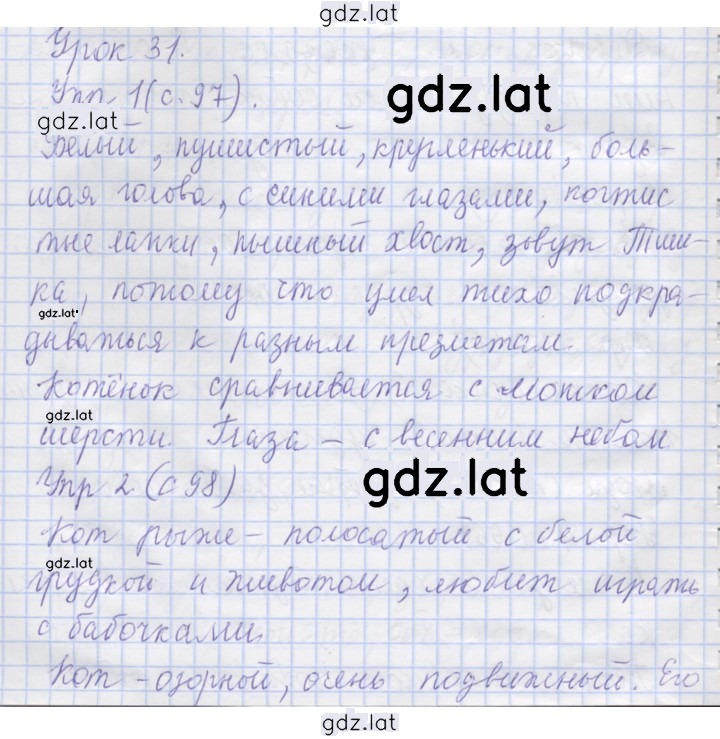 gdz.lat
Урок 31.
Упп. 1(с. 97).
gdz.lat
gdz.lat
Белый, пушистый, кругленький, боль-
шая голова, с синими глазами, когтис
тые лапки, пышный хвост, зовут Тиш-
ка, потому что умел тихо подкра-
gdz.lat
дываться к разным предметам.
Котёнок сравнивается с мотком
gdz.lat
шерсти. Глаза – с весенним небом
gdz.lat
Упр 2 (с 98)
Кот рыже-полосатый с белой
gdz.lat
грудкой и животом, любит играть
с бабочками.
Кот – озорной, очень подвижный. Его
gdz.lat